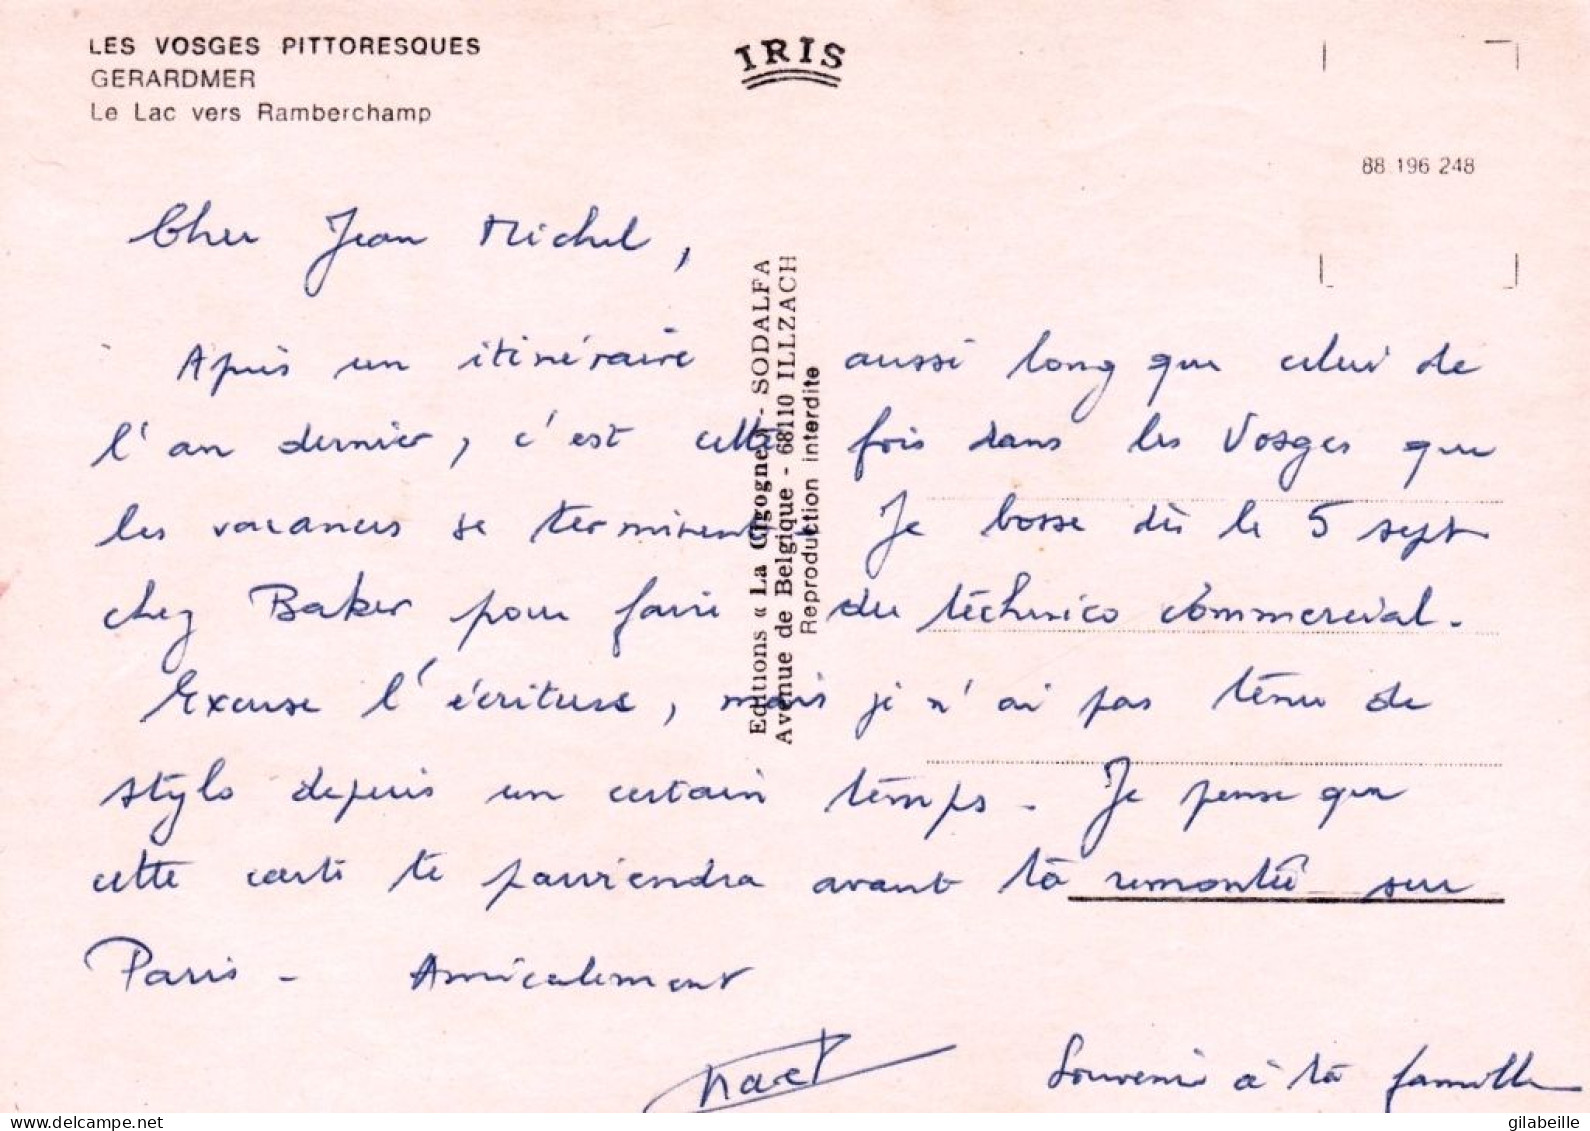 LES VOSGES PITTORESQUES
GERARDMER
Le Lac vers Ramberchamp
IRIS
88 196 248
Cher Jean Michel,
Après un itinéraire aussi long que celui de
l'an dernier, c'est cette fois dans les Vosges que
les vacances se terminent. Je bosse dès le 5 sept
chez Baker pour faire du téchnico commercial.
Excuse l'écriture, mais je n'ai pas ténu de
stylo depuis un certain temps. Je pense que
cette carte te parviendra avant ta remontée sur
Paris - Amicalement
Souvenir à ta famille
Editions « La Cigogne » - SODALFA
Avenue de Belgique - 68110 ILLZACH
Reproduction interdite
gilabeille